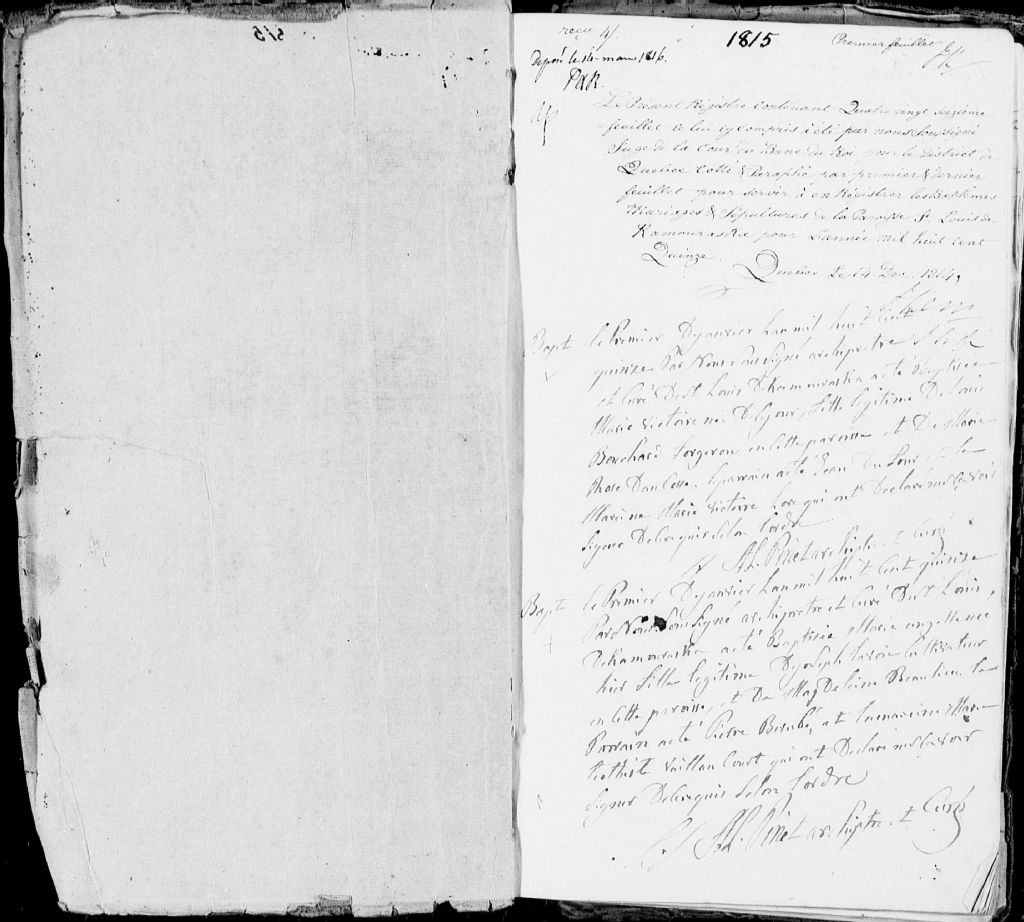 recu 4/
1815
Premier feuillet
déposé le 14 mars 1816.
P&R.
Le Présent Régistre contenant Quatre vingt seizième
feuillet ce lui cy compris à été par nous Soussigné
Juge de la Cour du Banc du Roi pour le District de
Quebec Cotté & Paraphé par premier & dernier
feuillet pour servir à en Régistrer les Baptêmes
Mariages & Sépultures de la Paroisse St Louis de
Kamouraska pour L'année mil huit cent
Quinze. Quebec Le 14 Dec. 1814.
Bapt le Premier De janvier Lan mil huit Cent
quinze Par Nous Sous Signé archiprêtre
et Curé De St Louis De Kamouraska a eté Baptisée
Marie Victoire née De ce jour, fille legitime De Louis
Bouchard forgeron en cette paroisse et De Marie
Rose Dancosse. le parrain a eté Jean Du four et la
Marine Marie Victoire qui ont Declaré ne scavoir
Signer De ce requis Selon Lordre
J. A. L. Pinet archiptre et Curé
Bapt le Premier De janvier Lan mil huit Cent quinze
Par Nous Sous Signé archiprêtre et Curé De St Louis
De Kamouraska a eté Baptisée Marie angel née
hier fille legitime De joseph Lavoie Cultivateur
en Cette paroisse, et De Magdeleine Beaulieu. Le
Parrain a eté Pierre Berubé, et la marine Marie
Vaillan Court qui ont Declaré ne scavoir
Signer De ce requis Selon Lordre
J. A. L. Pinet archiptre et Curé